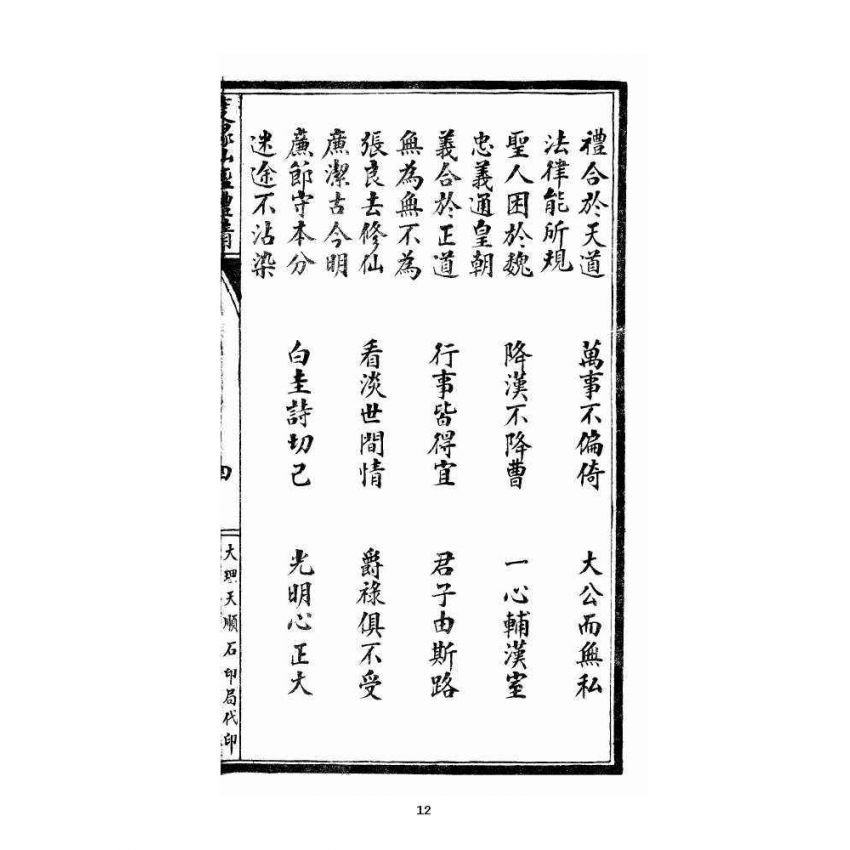 禮合於天道　萬事不偏倚　大公而無私
法律能所規
聖人困於魏　降漢不降曹　一心輔漢室
忠義通皇朝
義合於正道　行事皆得宜　君子由斯路
無為無不為
張良去修仙　看淡世間情　爵祿俱不受
廉潔古今明
廉節守本分　白圭詩切己　光明心正大
迷途不沾染
四
大理天順石印局代印
12